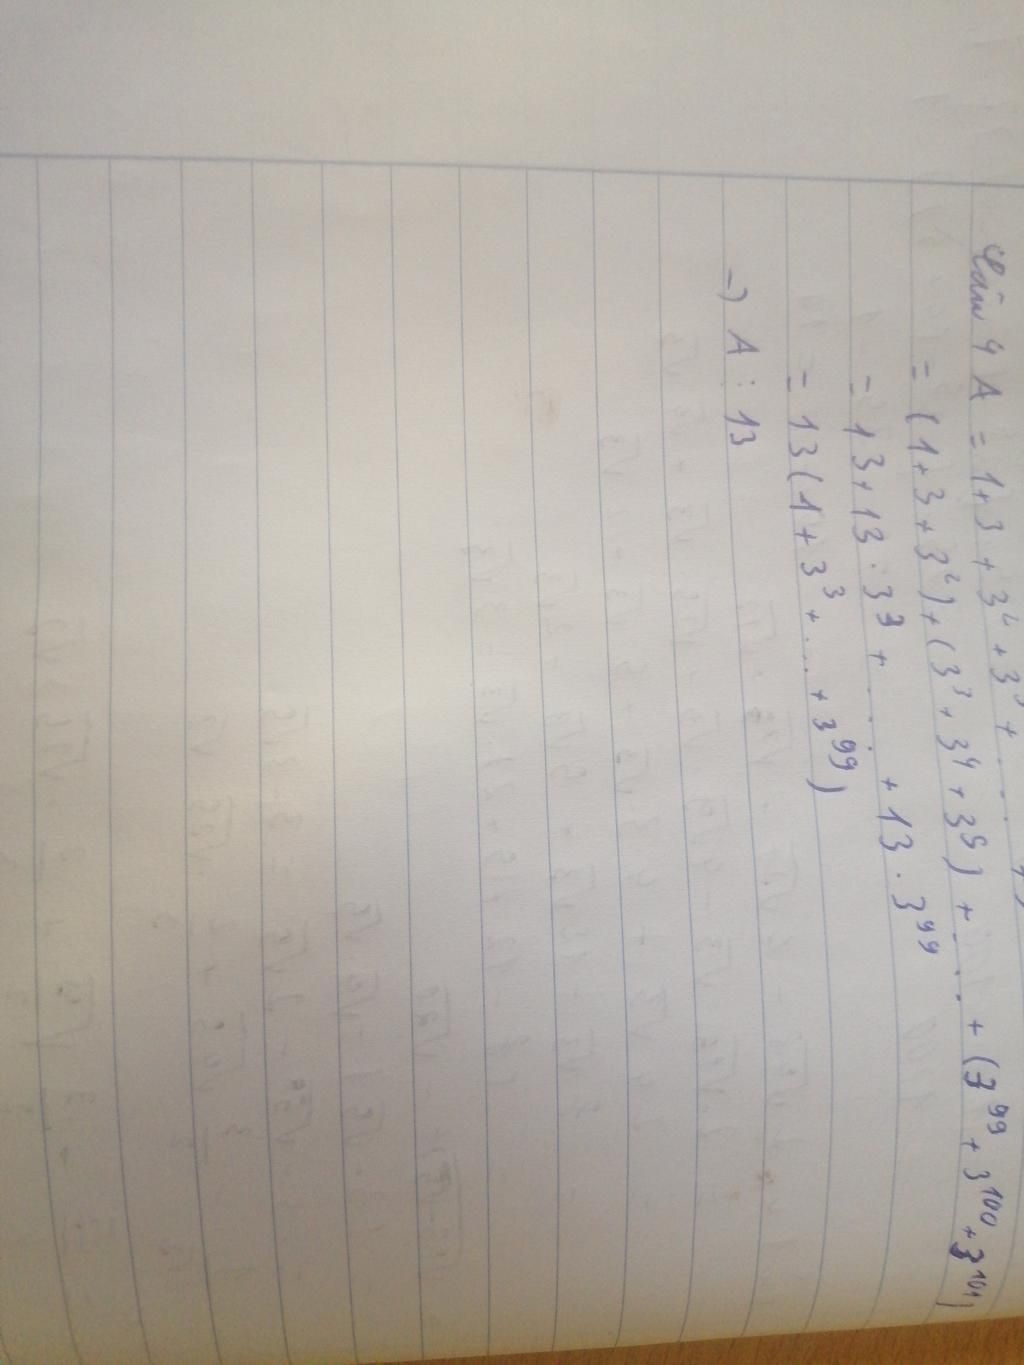 4 A = 1+3 + 3² + 3³ + ...
= (1+3+3²)+(3³+3⁴+3⁵)+ ... + (3⁹⁹ + 3¹⁰⁰ + 3¹⁰¹)
= 13+13.3³ + ... + 13.3⁹⁹
= 13(1+3³+ ... +3⁹⁹)
-) A : 13